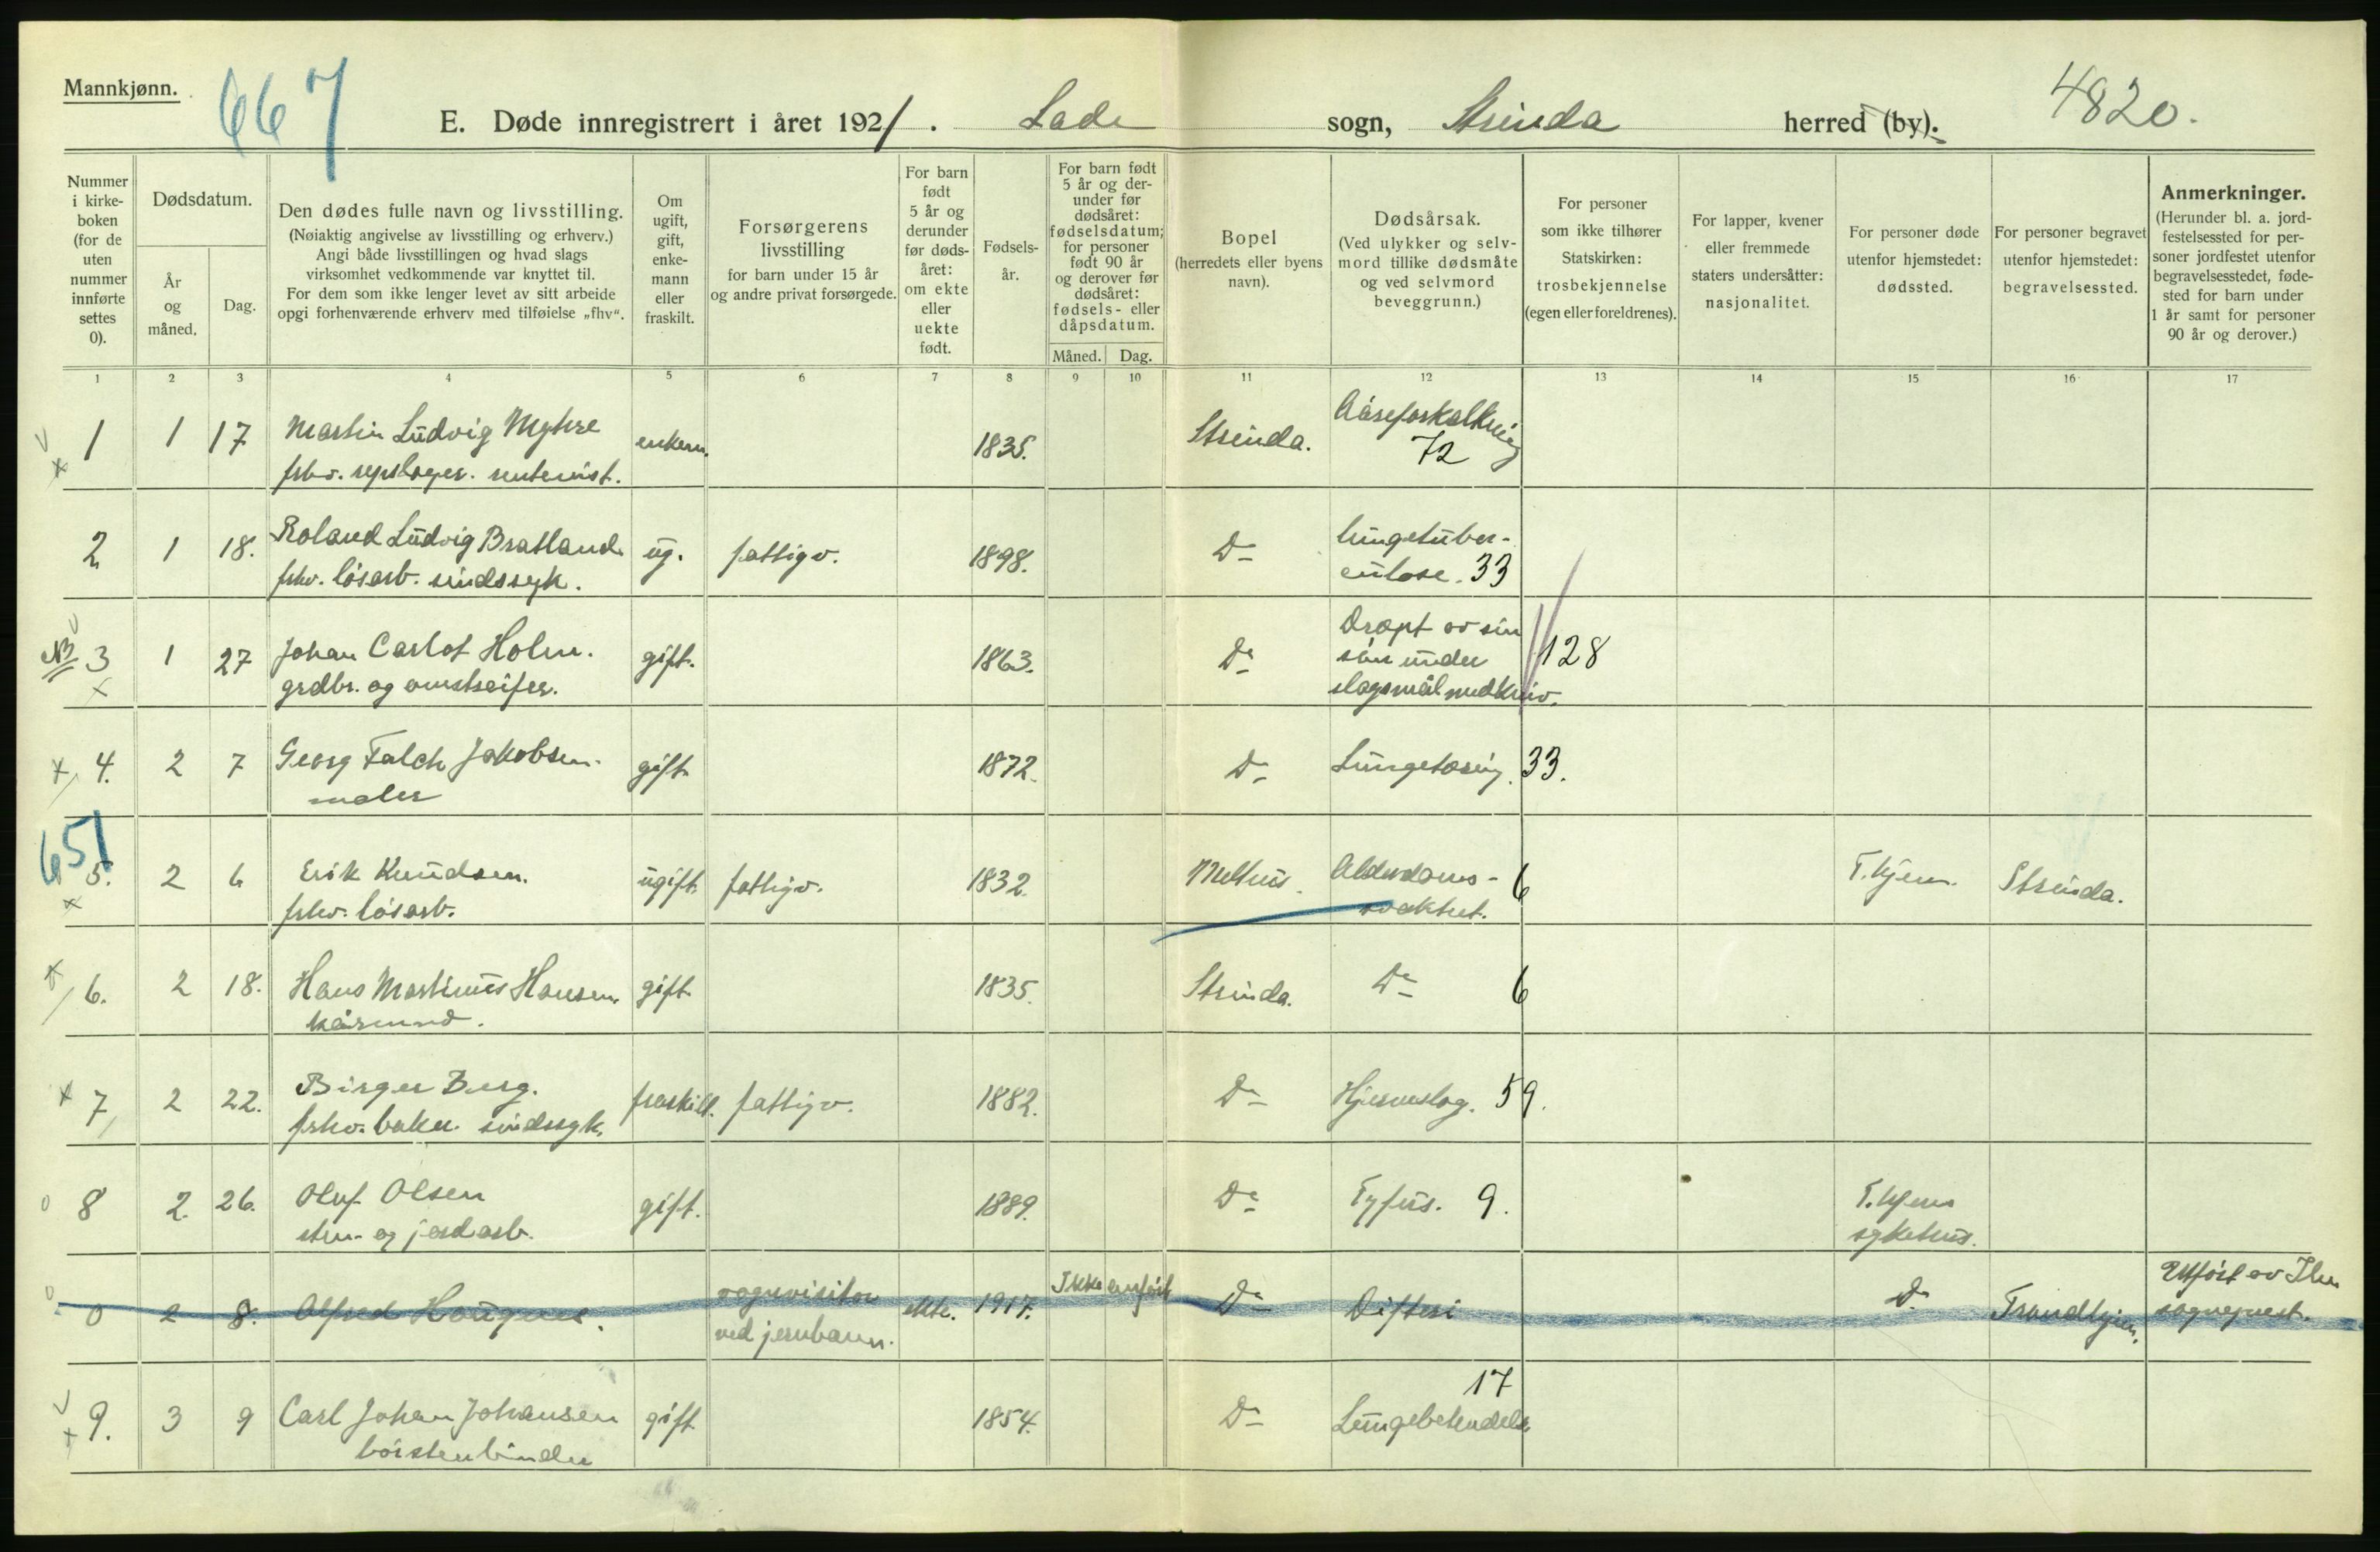 Mannkjønn.
667
E. Døde innregistrert i året 1921. Lade sogn, Strinda herred (by).
4820.
Nummer i kirke- boken (for de uten nummer innførte settes 0).
Dødsdatum.
År og måned.
Dag.
Den dødes fulle navn og livsstilling.
(Nøiaktig angivelse av livsstilling og erhverv.)
Angi både livsstillingen og hvad slags
virksomhet vedkommende var knyttet til.
For dem som ikke lenger levet av sitt arbeide
opgi forhenværende erhverv med tilføielse „fhv“.
Om ugift, gift, enke- mann eller fraskilt.
Forsørgerens
livsstilling
for barn under 15 år
og andre privat forsørgede.
For barn født 5 år og derunder før døds- året: om ekte eller uekte født.
Fødsels- år.
For barn født 5 år og der- under før dødsåret: fødselsdatum; for personer født 90 år og derover før dødsåret: fødsels- eller dåpsdatum.
Måned. Dag.
Bopel
(herredets eller byens
navn).
Dødsårsak.
(Ved ulykker og selv-
mord tillike dødsmåte
og ved selvmord
beveggrunn.)
For personer
som ikke tilhører
Statskirken:
trosbekjennelse
(egen eller foreldrenes).
For lapper, kvener
eller fremmede
staters undersåtter:
nasjonalitet.
For personer døde
utenfor hjemstedet:
dødssted.
For personer begravet
utenfor hjemstedet:
begravelsessted.
Anmerkninger.
(Herunder bl. a. jord-
festelsessted for per-
soner jordfestet utenfor
begravelsesstedet, føde-
sted for barn under
1 år samt for personer
90 år og derover.)
1 2 3 4 5 6 7 8 9 10 11 12 13 14 15 16 17
1 1 17 Martin Ludvig Myhre enkem. 1835. Strinda. Åreforkalkning 72
fhv. repslager. rentenist.
2 1 18. Roland Ludvig Bratland. ug. fattigv. 1898. Do lungetuber-
fhv. løsarb. sindssyk. culose. 33
NB 3 1 27 Johan Carlot Holm. gift. 1863. Do Dræpt av sin
grdbr. og søn under
slagsmål med kniv. 128
4. 2 7 Georg Falch Jakobsen. gift 1872. Do Lungetæring. 33.
maler
651
5. 2 6 Erik Knudsen. ugift. fattigv. 1832. Melhus. Alderdoms- 6 T.hjem. Strinda.
fhv. løsarb. svakhet.
6. 2 18. Hans Martinus Hansen. gift. 1835. Strinda. Do 6
kårmand.
7 2 22. Birger Berg. fraskilt. fattigv. 1882. Do Hjerneslag. 59.
fhv. baker. sindssyk.
8 2. 26. Oluf Olsen gift. 1889. Do Tyfus. 9. T.hjems
sten- og jordarb. sykehus.
0 2 8. Alfred Haugnes. vognvisitør ekte. 1917. Ikke anført Do Difteri Do Trondhjem. Utført av Ilen
ved jernbanen. sogneprest.
9. 3 9 Carl Johan Johansen gift 1854. Do 17
børstenbinder Lungebetendelse